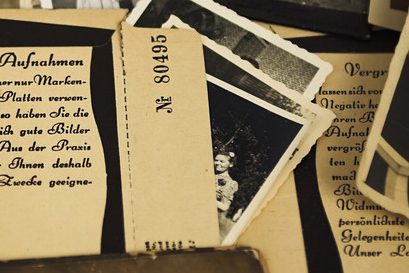 Aufnahmen
er nur Marken-
Platten verwen-
so haben Sie die
gute Bilder
Aus der Praxis
Ihnen deshalb
Zwecke geeigne-
№ 80495
Vergr
lassen sich vo
Negativ he
Aufnah
vergrö
ten h
mach
Bi
Widmu
persönlichste
Gelegenheite
Unser La